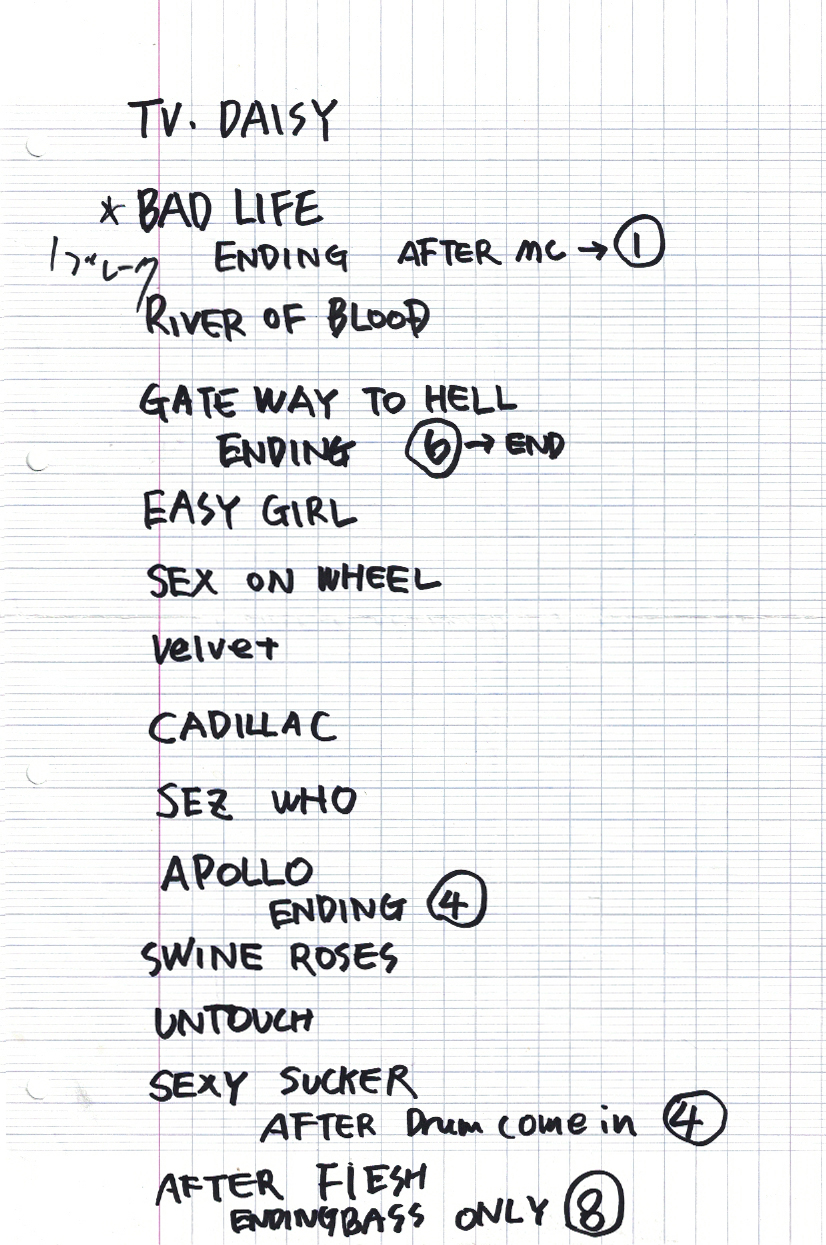 TV. DAISY
* BAD LIFE
ENDING AFTER MC → ①
1ブレーク
RIVER OF BLOOD
GATE WAY TO HELL
ENDING ⑥ → END
EASY GIRL
SEX ON WHEEL
Velvet
CADILLAC
SEZ WHO
APOLLO
ENDING ④
SWINE ROSES
UNTOUCH
SEXY SUCKER
AFTER Drum come in ④
AFTER FlESH
ENDING BASS ONLY ⑧